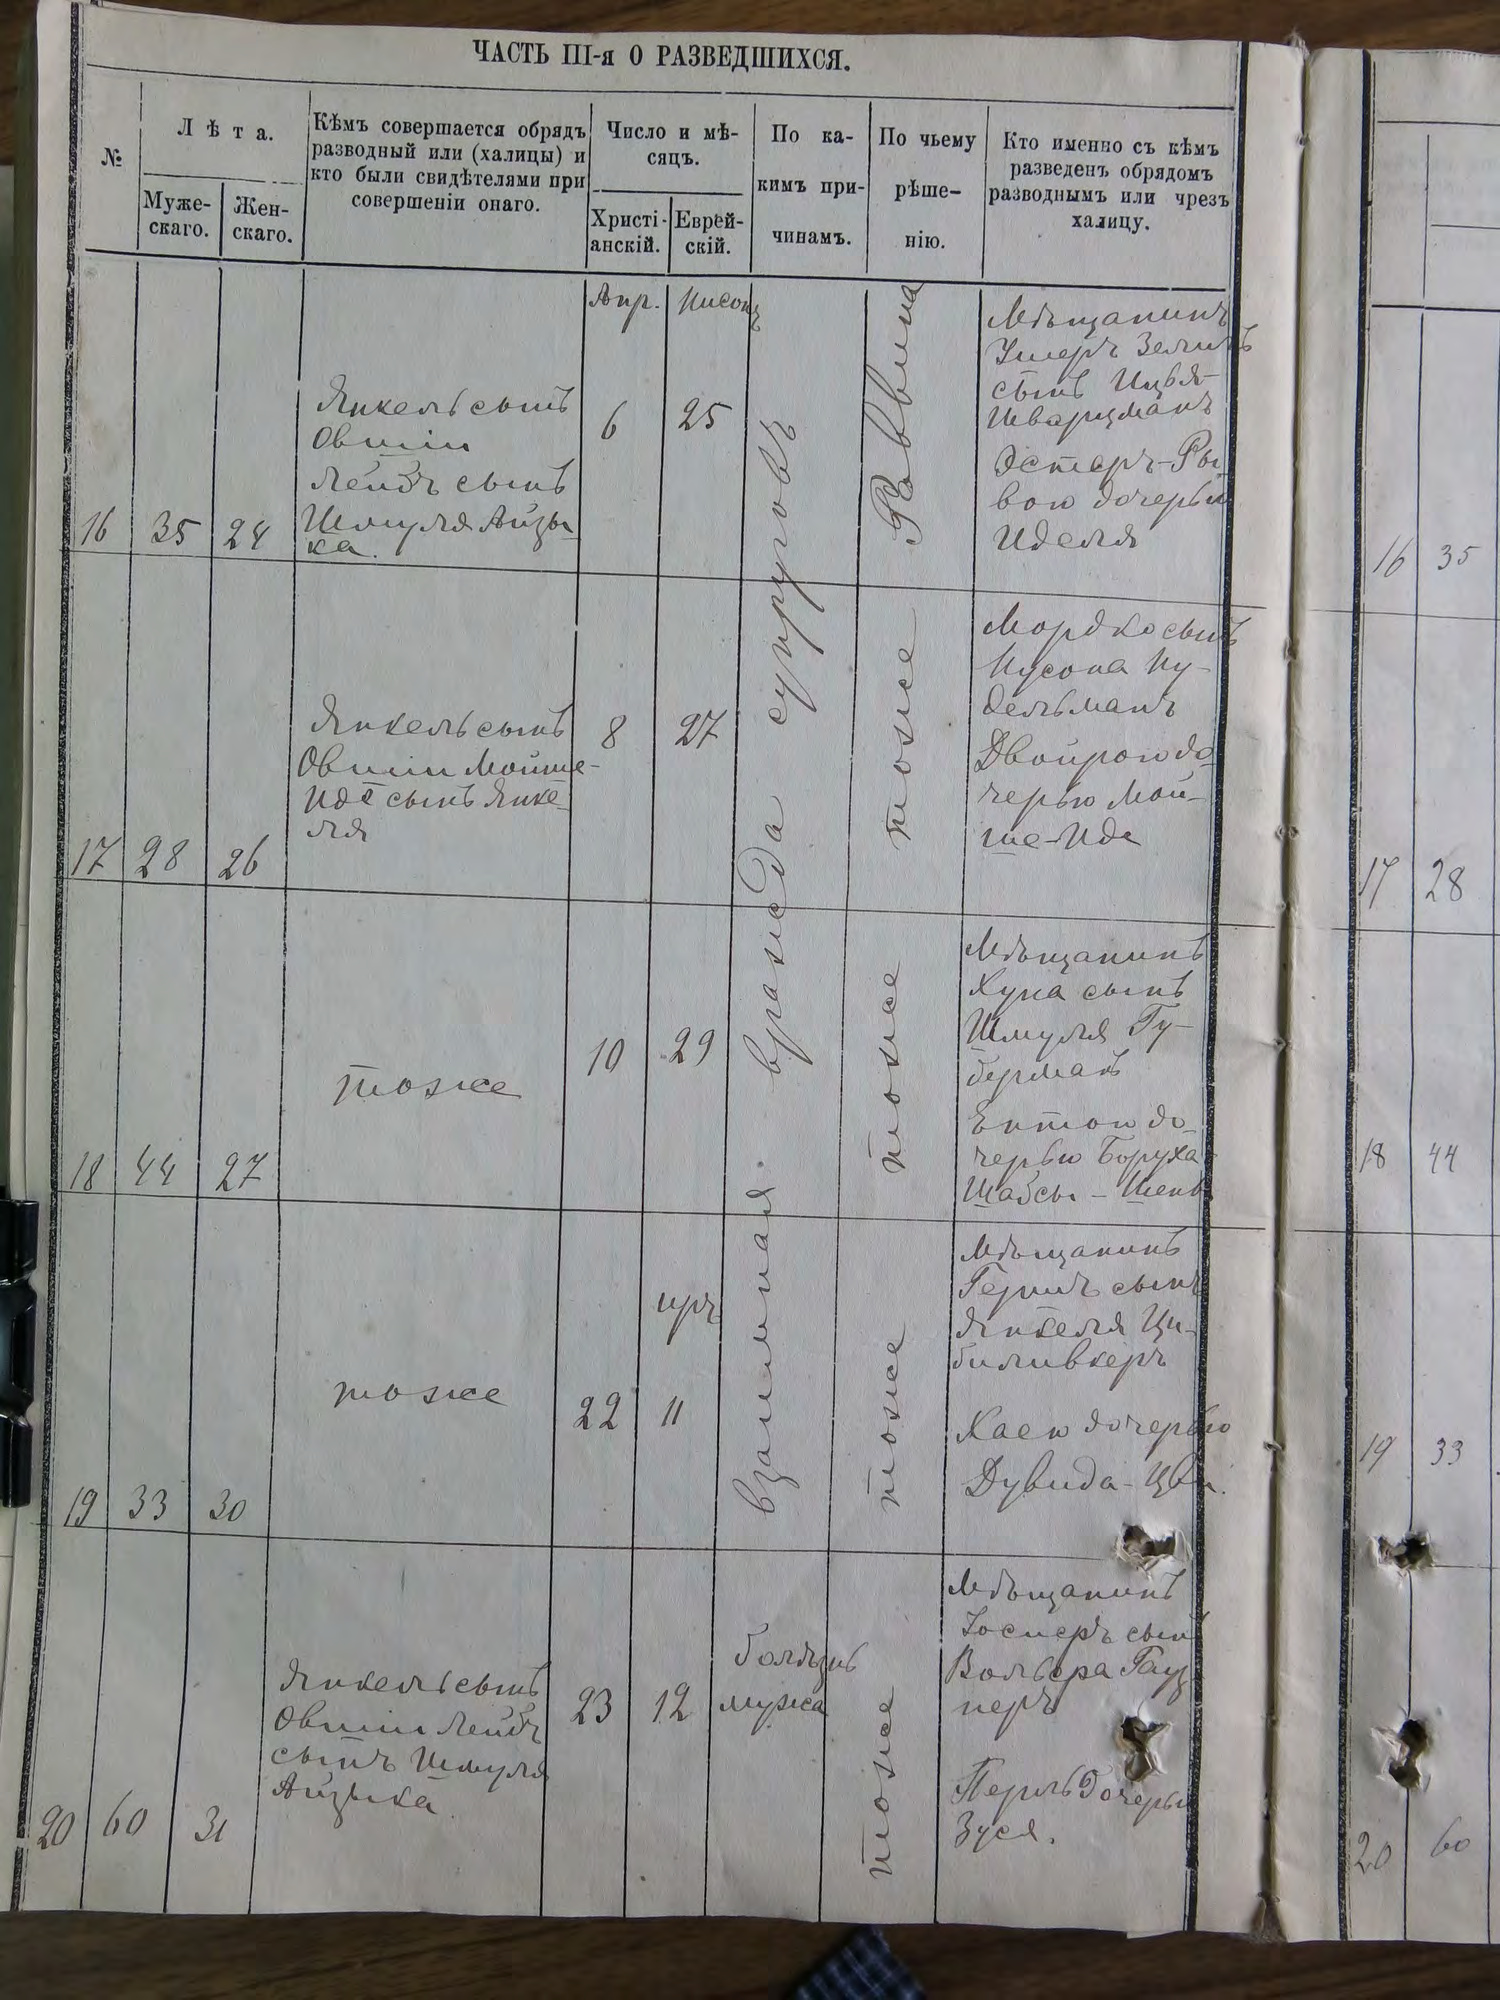 ЧАСТЬ III-я О РАЗВЕДШИХСЯ.
№
Лѣта.
Муже-
скаго.
Жен-
скаго.
Кѣмъ совершается обрядъ
разводный или (халицы) и
кто были свидѣтелями при
совершеніи онаго.
Число и мѣ-
сяцъ.
Христі-
анскій.
Еврей-
скій.
По ка-
кимъ при-
чинамъ.
По чьему
рѣше-
нію.
Кто именно съ кѣмъ
разведенъ обрядомъ
разводнымъ или чрезъ
халицу.
16
35
24
Янкель сынъ
Овшіи
Лейбъ сынъ
Шмуля Айзы-
ка.
Апр.
6
Нисонъ
25
взаимная вражда супруговъ
Раввина
Мѣщанинъ
сынъ
Шварцманъ
Эстеръ-Ры
вою дочерью
Иделя
17
28
26
Янкель сынъ
Овшіи Мойше-
Иде сынъ Янке-
ля
8
27
тоже
Мордко сынъ
Нусона Ну-
дельманъ
Двойрою до
черью Мой-
ше-Иде
18
44
27
тоже
10
29
тоже
Мѣщанинъ
Хуна сынъ
Шмуля Гу-
берманъ
Ентою до-
черью Боруха
Шабсы-
19
33
30
тоже
22
иръ
11
тоже
Мѣщанинъ
Гершъ сынъ
Янкеля Ци-
биливкеръ
Хаею дочерью
Дувида-
20
60
31
Янкель сынъ
Овшіи Лейбъ
сынъ Шмуля
Айзыка
23
12
болѣзнь
мужа
тоже
Мѣщанинъ
сынъ
Вольфа
неръ
Перль дочерью
Зуся.
16 35
17 28
18 44
19 33
20 60